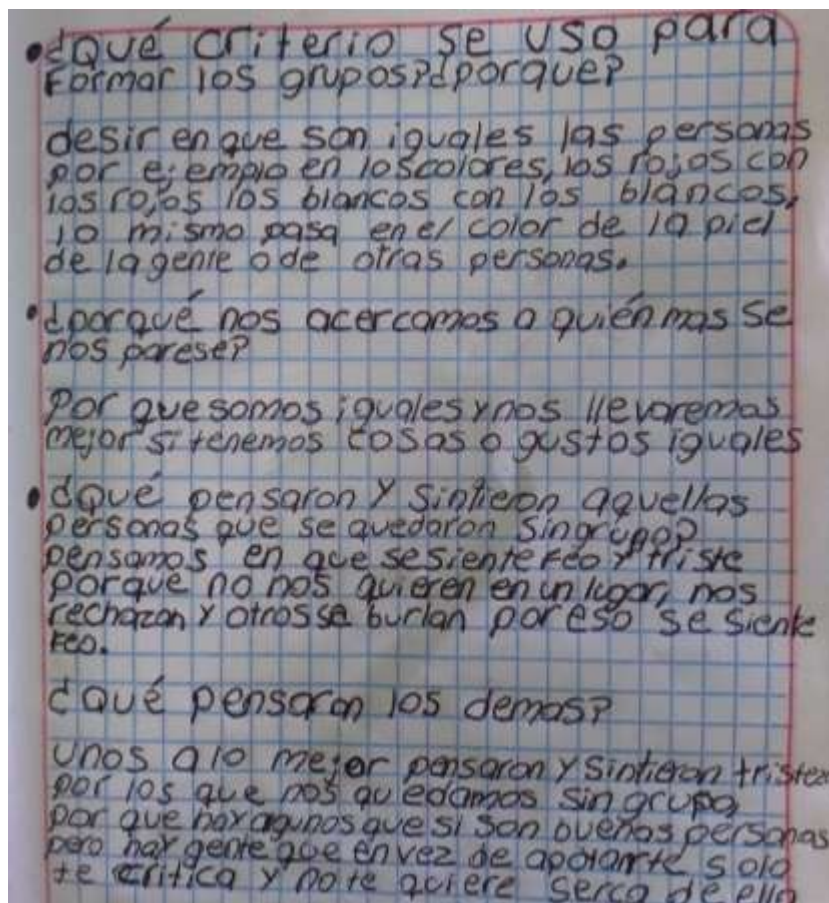 •¿Qué criterio se uso para
Formar los grupos?¿porque?
desir en que son iguales las personas
por ejemplo en los colores, los rojos con
los rojos los blancos con los blancos,
lo mismo pasa en el color de la piel
de la gente o de otras personas.
•¿porqué nos acercamos a quién mas se
nos parese?
Por que somos iguales y nos llevaremos
mejor si tenemos cosas o gustos iguales
•¿Qué pensaron y Sintieron aquellas
personas que se quedaron sin grupo?
pensamos en que se siente feo y triste
porque no nos quieren en un lugar, nos
rechazan y otros se burlan por eso se siente
feo.
¿Qué pensaron los demas?
Unos a lo mejor pensaron y sintieron tristeza
por los que nos quedamos sin grupo,
por que hay agunos que si son buenas personas
pero hay gente que en vez de apoiarte solo
te critica y no te quiere serca de ella